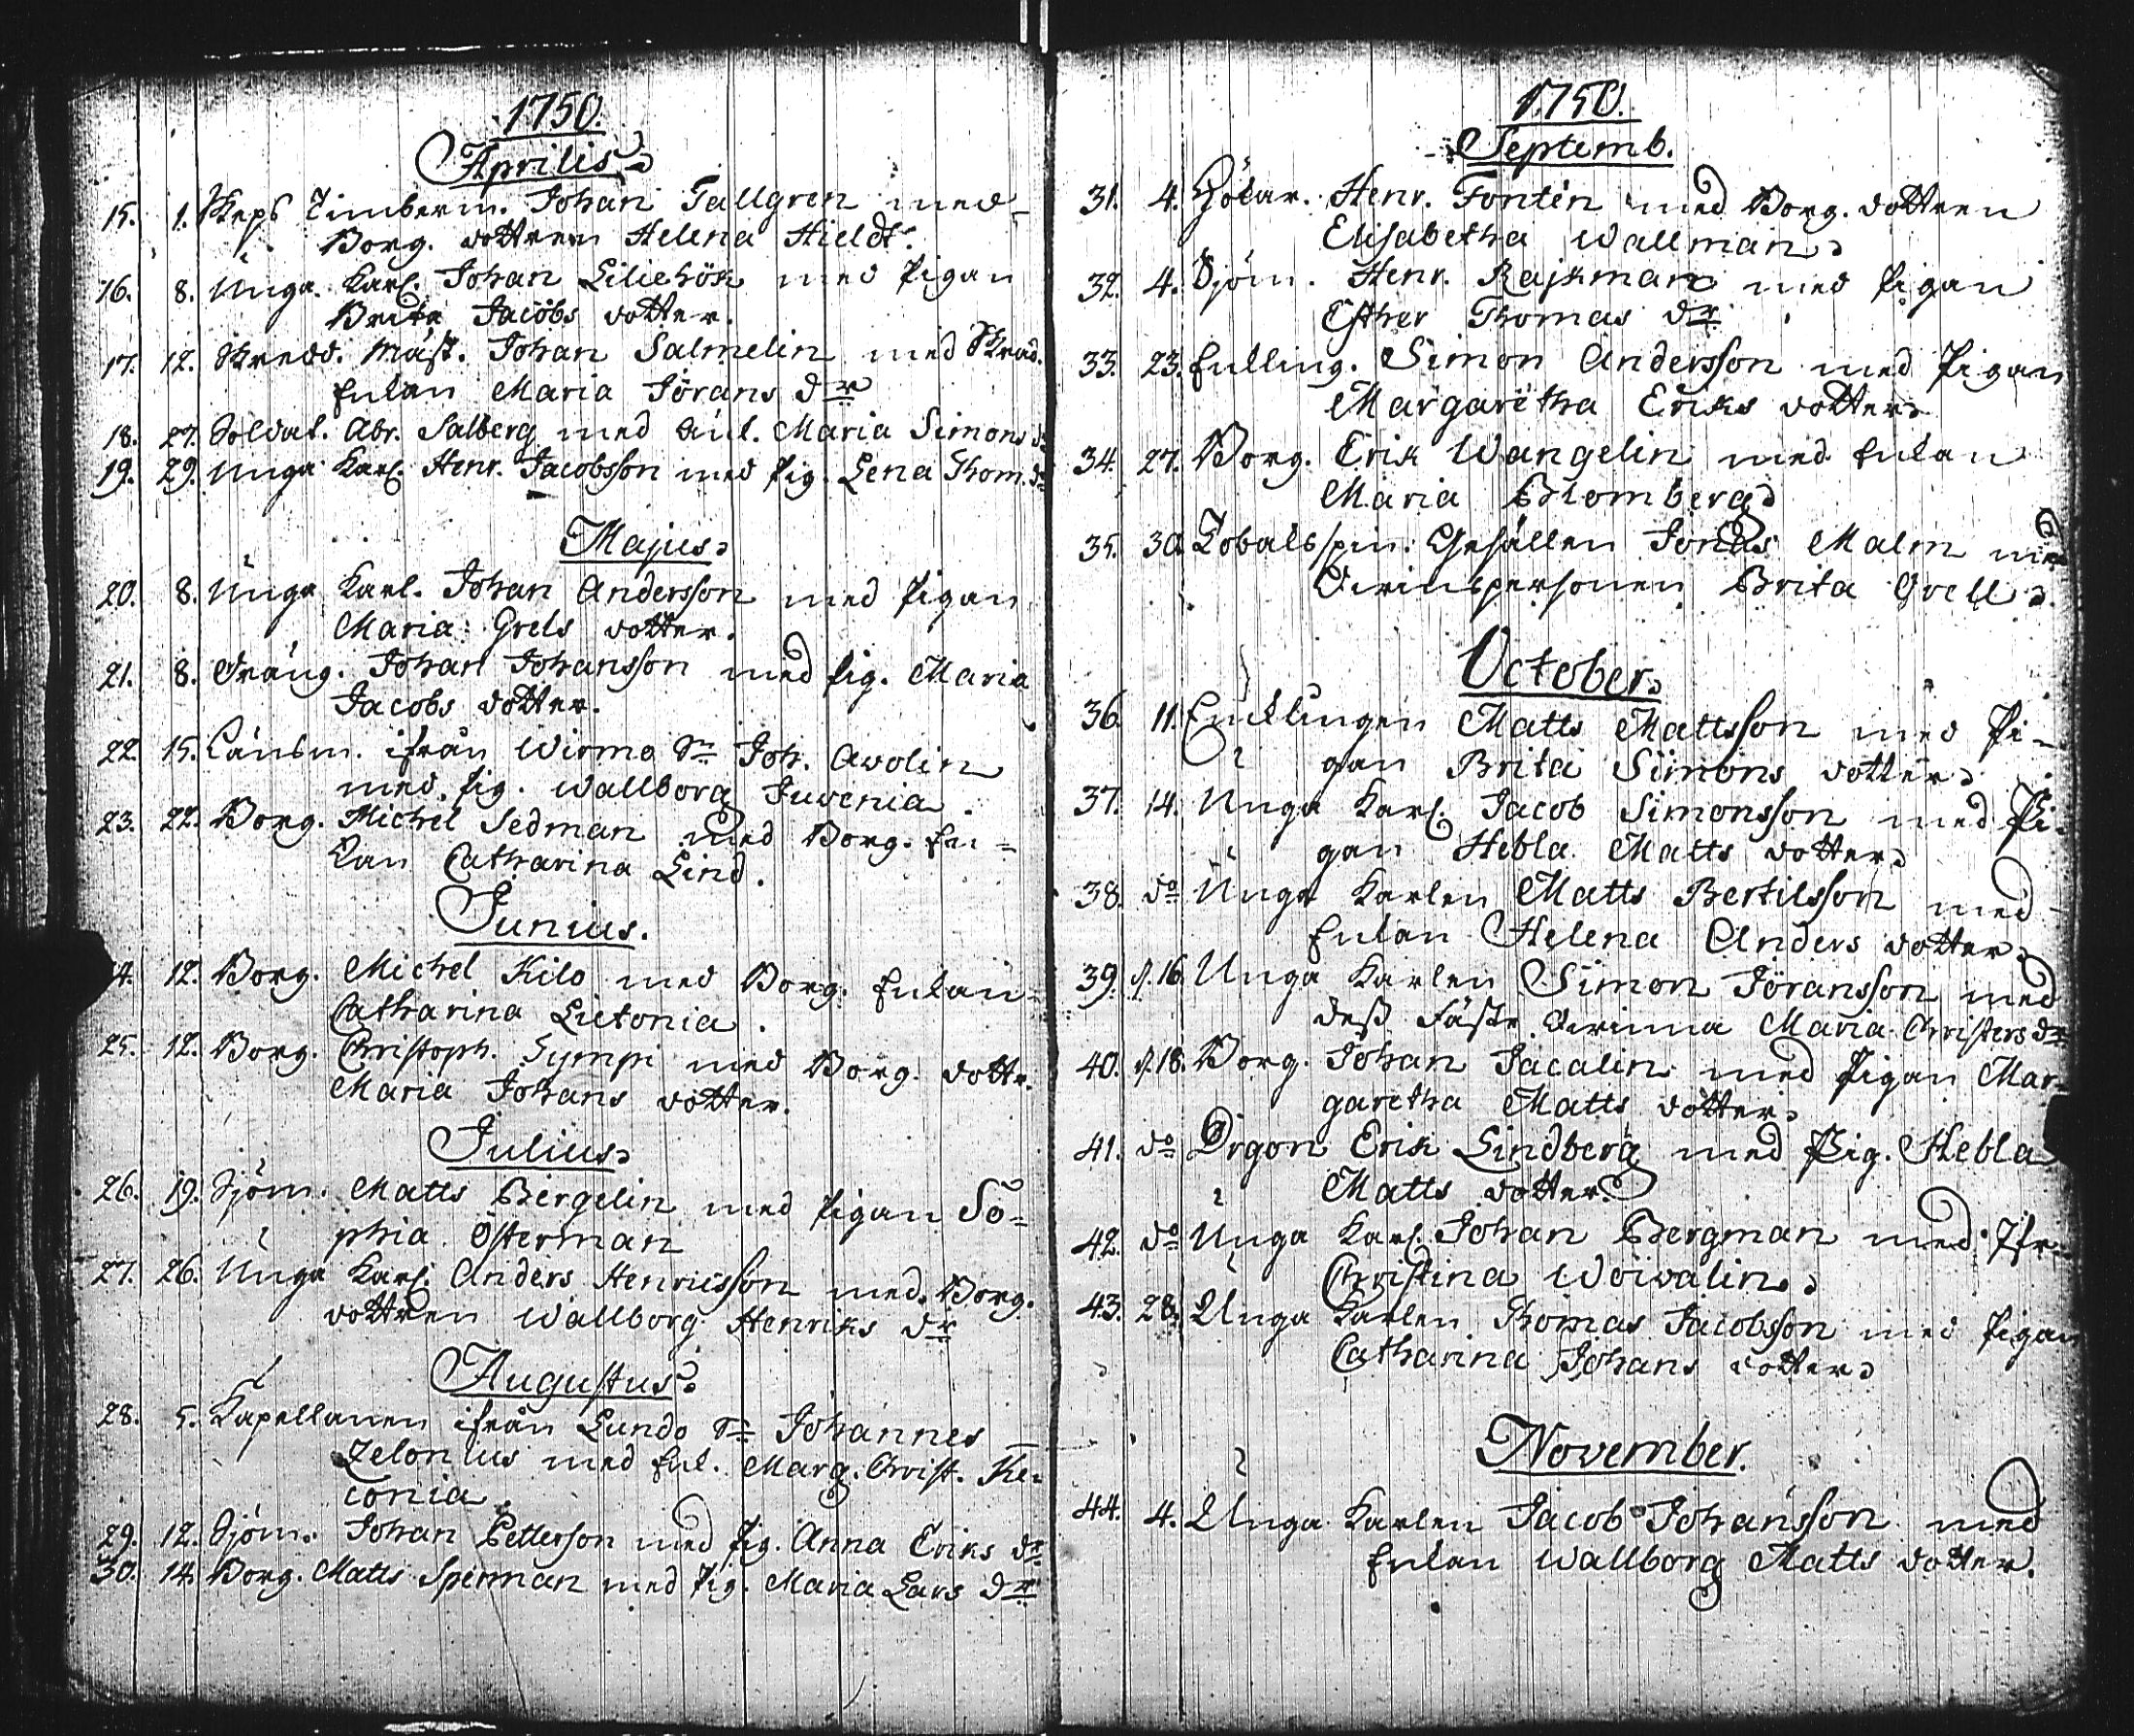 1750.
Aprilis
15. 1. Skeps Timberm. Johan Tallgren med
Borg. dottren Helena Hieldt.
16. 8. Unga Karl. Johan Liliehök med Pigan
Brita Jacobs dotter.
17. 12. Skredd. Mäst. Johan Salmelin med Skräd.
Enkan Maria Jörans dr
18. 27. Soldat. Abr. Salberg med Änk. Maria Simons dr
19. 29. Unga Karl. Henr. Jacobsson med Pig. Lena Thom. dr
Majus
20. 8. Unga Karl. Johan Andersson med Pigan
Maria Grels dotter.
21. 8. Dräng. Johan Johansson med Pig. Maria
Jacobs dotter.
22. 15. Länsm. ifrån Wirmo Sn Joh. Avolin
med Pig. Wallborg Juvenia.
23. 22. Borg. Michel Sedman med Borg. En=
kan Catharina Lind.
Junius.
4. 12. Borg. Michel Kilo med Borg. Enkan
Catharina Lietonia.
25. 12. Borg. Christoph. Sympi med Borg. dottr.
Maria Johans dotter.
Julius
26. 19. Sjöm. Matts Bergelin med Pigan So=
phia Österman
27. 26. Unga Karl. Anders Henricsson med Borg.
dottren Wallborg Henriks dr
Augustus
28. 5. Kapellanen ifrån Lundo Sn Johannes
Zelonius med Enk. Marg. Christ. Ke=
conia.
29. 12. Sjöm. Johan Petterson med Pig. Anna Eriks dr
30. 14. Borg. Matts Sperman med Pig. Maria Lars dr
1750.
Septemb.
31. 4. Hökar. Henr. Fontén med Borg. dottren
Elisabetha Wallman
32. 4. Sjöm. Henr. Rajkman med Pigan
Esther Thomas dr
33. 23. Enkling. Simon Andersson med Pigan
Margaretha Eriks dotter
34. 27. Borg. Erik Wangelin med Enkan
Maria Blomberg
35. 30. Tobaksspin. Gesällen Jonas Malm med
Qvinspersonen Brita Grell
October
36. 11. Enklingen Matts Mattsson med Pi=
gan Brita Simons dotter
37. 14. Unga Karl. Jacob Simonsson med Pi=
gan Hebla Matts dotter
38. do Unga Karlen Matts Bertilsson med
Enkan Helena Anders dotter
39. d. 16. Unga Karlen Simon Jöransson med
dess Fäste Qvinna Maria Christers dr
40. d. 18. Borg. Johan Jacalin med Pigan Mar=
garetha Matts dotter
41. do Drgon Erik Lindberg med Pig. Hebla
Matts dotter
42. do Unga Karl. Johan Bergman med Jfr.
Christina Woivalin
43. 28. Unga Karlen Thomas Jacobsson med Pigan
Catharina Johans dotter
November.
44. 4. Unga Karlen Jacob Johansson med
Enkan Wallborg Matts dotter.